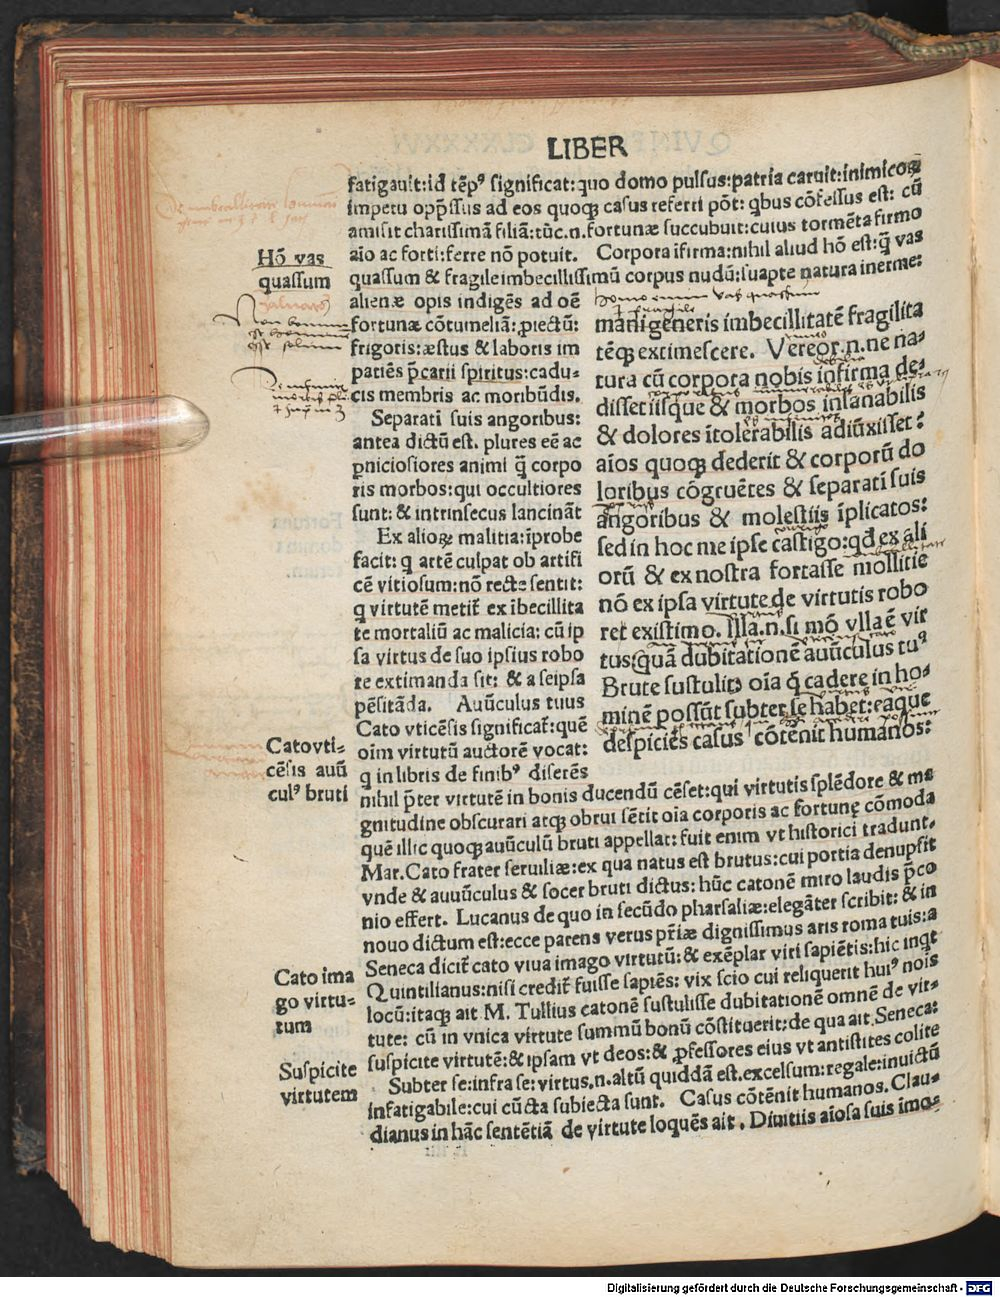 LIBER
fatigauit:id tẽpꝰ significat:quo domo pulsus:patria caruit:inimicoꝝ
impetu opp̃ssus ad eos quoqꝫ casus referri põt: qbus cõfessus est: cũ
amisit charissimã filiã:tũc.n.fortunæ succubuit:cuius tormẽta firmo
aïo ac forti:ferre nõ potuit. Corpora ĩfirma:nihil aliud hõ est:q̃ vas
quassum & fragile imbecillissimũ corpus nudũ:suapte natura inerme:
Hõ vas
quassum
alienæ opis indigẽs ad oẽ
fortunæ cõtumeliã: ꝓiectũ:
frigoris: æstus & laboris im
patiẽs p̃carii spiritus:cadu-
cis membris ac moribũdis.
Separati suis angoribus:
antea dictũ est. plures eẽ ac
ꝑniciosiores animi q̃ corpo
ris morbos:qui occultiores
sunt: & intrinsecus lancinãt
Ex alioꝝ malitia:ĩprobe
facit: q artẽ culpat ob artifi
cẽ vitiosum:nõ recte sentit:
q virtutẽ metit̃ ex ĩbecillita
te mortaliũ ac malicia: cũ ip
sa virtus de suo ipsius robo
re extimanda sit: & a seipsa
pẽsitãda. Auũculus tuus
Cato vticẽsis significat̃:quẽ
oĩm virtutũ auctorẽ vocat:
q in libris de finibꝰ diserẽs
homo enim vas quassum
mani generis imbecillitatẽ fragilita
tẽqꝫ extimescere. Vereor.n.ne na-
tura cũ corpora nobis infirma de-
disset iisque & morbos insanabilis
& dolores ĩtolerabilis adiũxisset:
aĩos quoqꝫ dederit & corporũ do
loribus cõgruẽtes & separati suis
angoribus & molestiis ĩplicatos:
sed in hoc me ipse castigo:qd ex ali
orũ & ex nostra fortasse mollitie
nõ ex ipsa virtute de virtutis robo
re existimo. Illa.n.si mõ vlla ẽ vir
tus:quã dubitationẽ auũculus tuꝰ
Brute sustulit: oĩa q̃ cadere in ho-
minẽ possũt subter se habet:eaque
despiciẽs casus cõtẽnit humanos:
Cato vti-
cẽsis auũ
culꝰ bruti
nihil p̃ter virtutẽ in bonis ducendũ cẽset:qui virtutis splẽdore & ma
gnitudine obscurari atqꝫ obrui sẽtit oĩa corporis ac fortunę cõmoda
quẽ illic quoqꝫ auũculũ bruti appellat: fuit enim vt historici tradunt.
Mar.Cato frater seruiliæ:ex qua natus est brutus:cui portia denupsit
vnde & auuũculus & socer bruti dictus: hũc catonẽ miro laudis p̃co
nio effert. Lucanus de quo in secũdo pharsaliæ:elegãter scribit: & in
nouo dictum est:ecce parens verus pr̃iæ dignissimus aris roma tuis:a
Seneca dicit̃ cato viua imago virtutũ: & exẽplar viri sapiẽtis:hic inqt
Quintilianus:nisi credit̃ fuisse sapiẽs: vix scio cui reliquerit huiꝰ nois
locũ:itaqꝫ ait M. Tullius catonẽ sustulisse dubitationẽ omnẽ de vir-
tute: cũ in vnica virtute summũ bonũ cõstituerit:de qua ait Seneca:
suspicite virtutẽ:& ipsam vt deos:& ꝓfessores eius vt antistites colite
Subter se:infra se: virtus.n.altũ quiddã est.excelsum:regale:inuictũ
infatigabile:cui cũcta subiecta sunt. Casus cõtẽnit humanos. Clau-
dianus in hãc sentẽtiã de virtute loquẽs ait. Diuitiis aĩosa suis ĩmo-
Cato ima
go virtu-
tum
Suspicite
virtutem
Digitalisierung gefördert durch die Deutsche Forschungsgemeinschaft - DFG